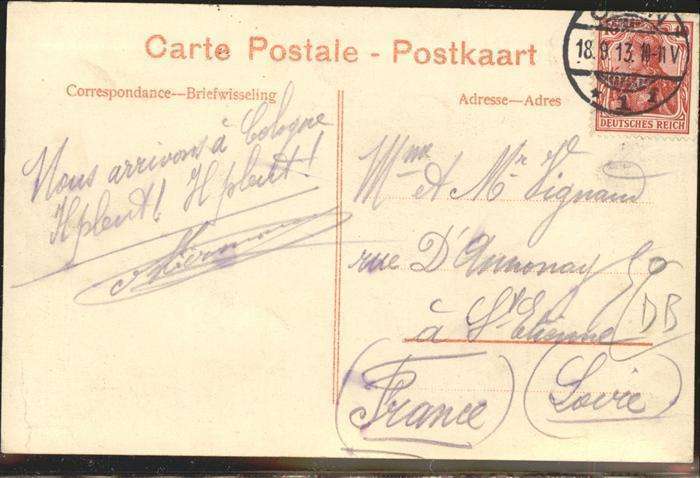 Carte Postale - Postkaart
Correspondance—Briefwisseling
Nous arrivons à Cologne
Il pleut! Il pleut!
Adresse—Adres
18.9.13. 10-11 V
1
DEUTSCHES REICH
Mme et Mr Vignaud
rue D'Annonay 59
à St Etienne
(France) (Loire)
DB